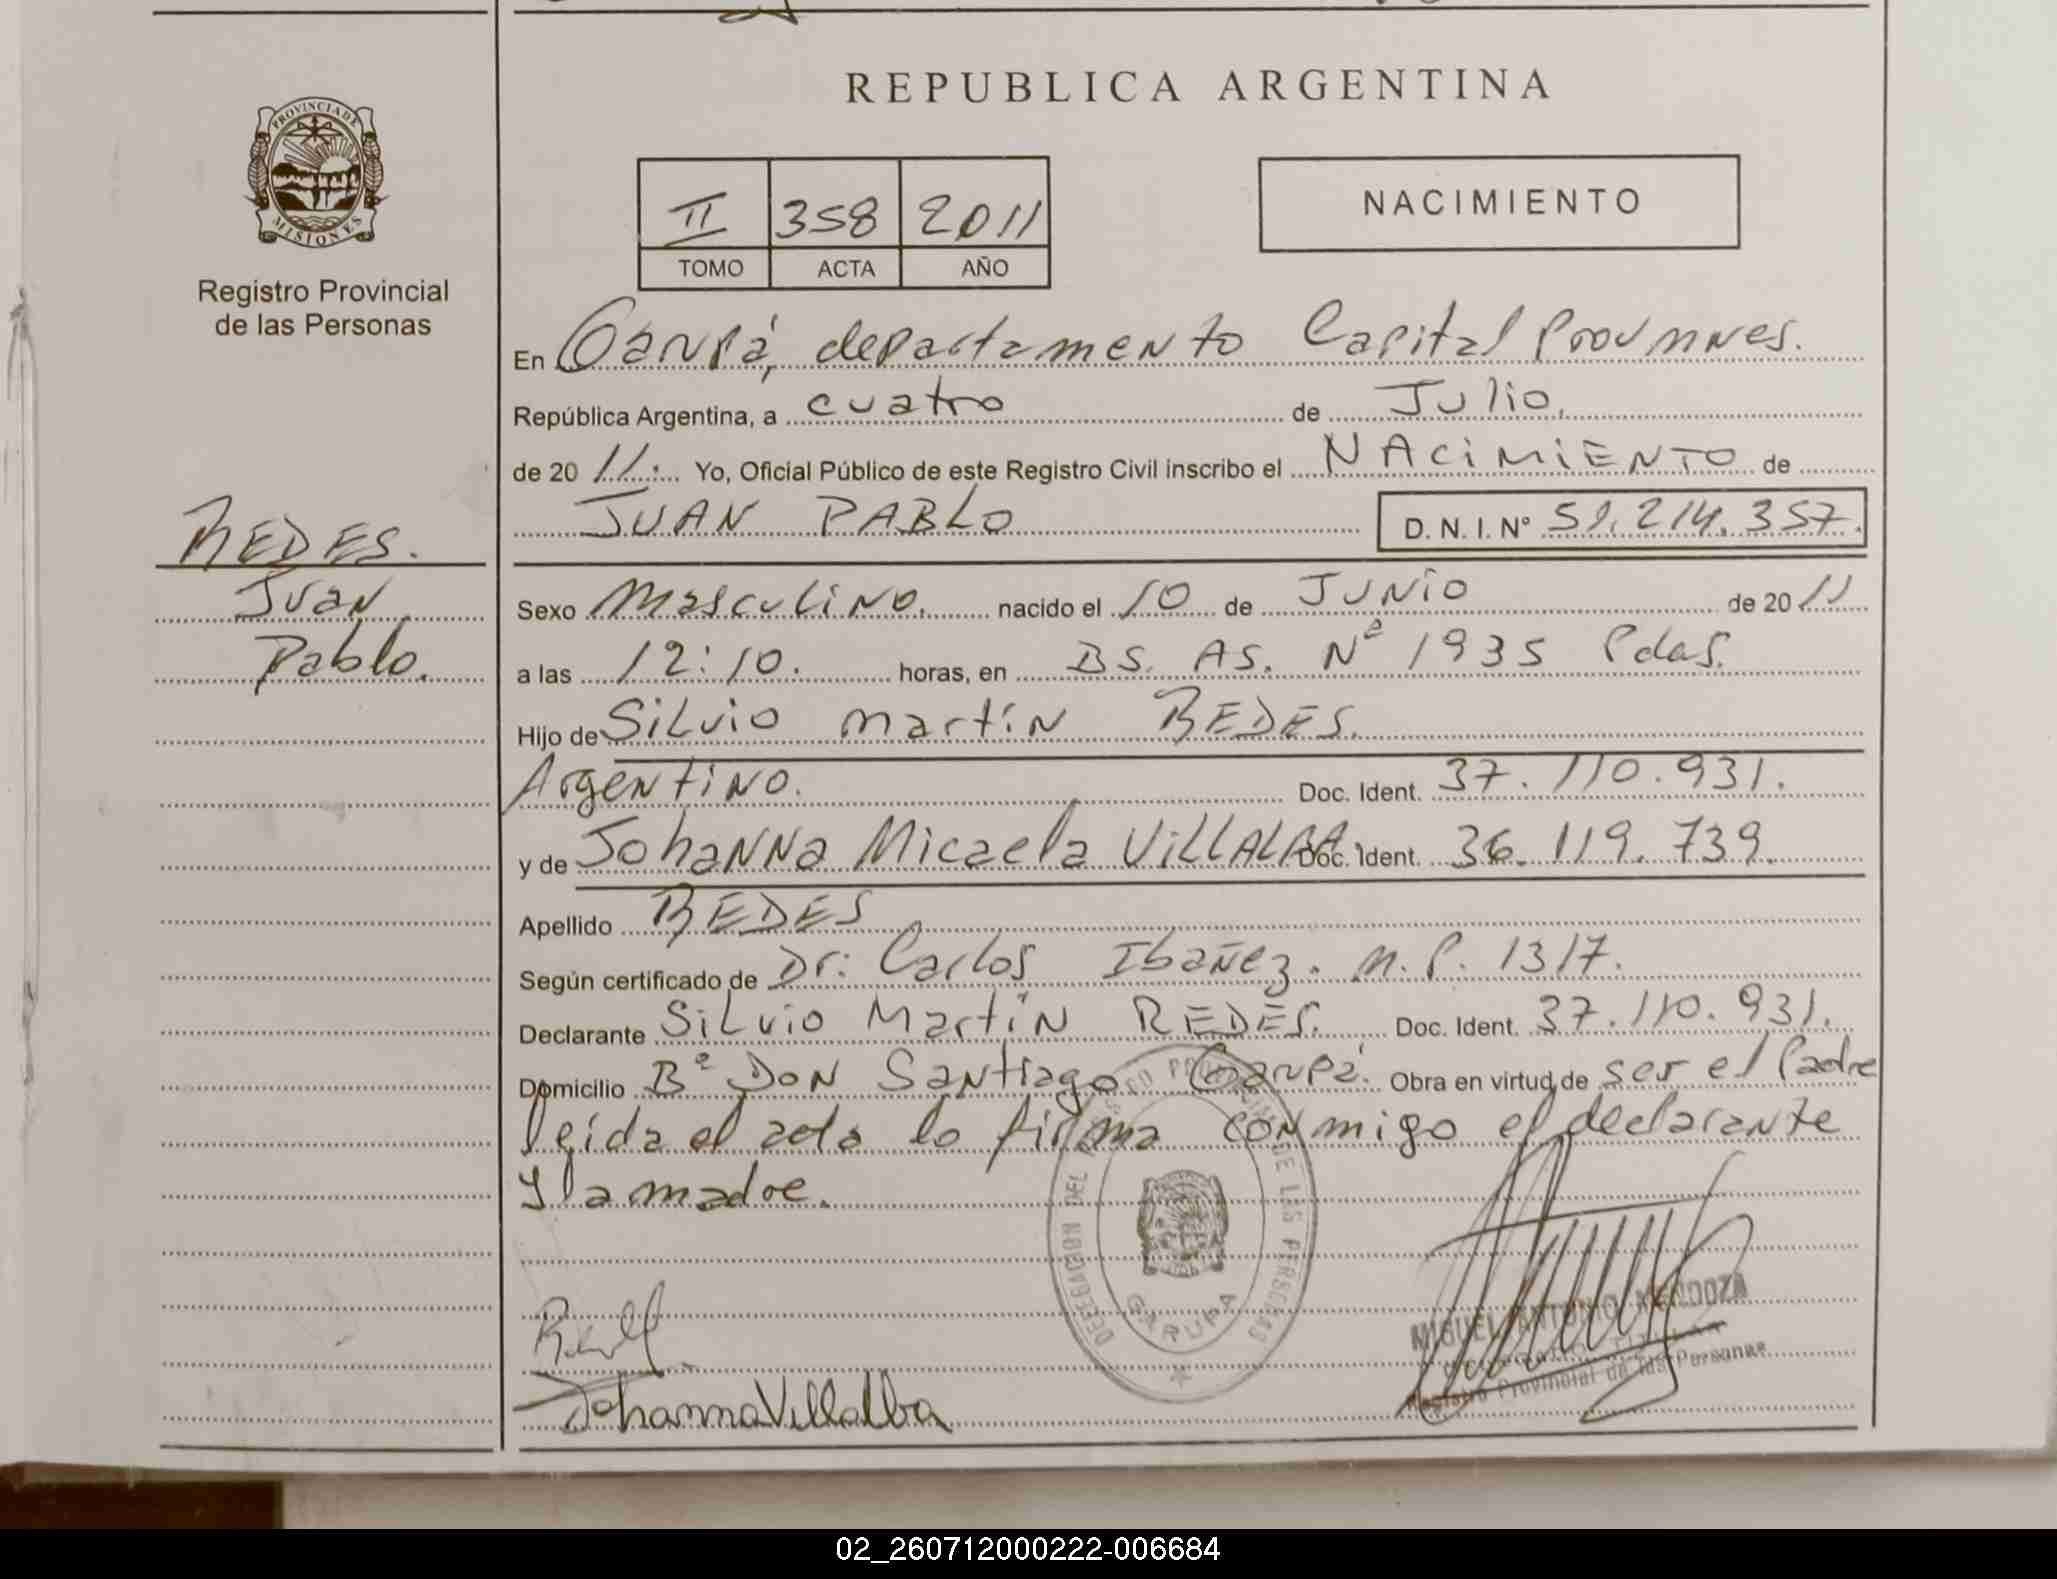 REPUBLICA ARGENTINA
PROVINCIA DE MISIONES
Registro Provincial
de las Personas
II 358 2011
TOMO ACTA AÑO
NACIMIENTO
En Garupá, departamento Capital Prov Mnes.
República Argentina, a cuatro de Julio,
de 20 11. Yo, Oficial Público de este Registro Civil inscribo el NACIMIENTO de
JUAN PABLO D. N. I. Nº 51.214.357.
REDES.
Juan
Pablo.
Sexo Masculino. nacido el 10 de JUNIO de 20 11
a las 12:10. horas, en BS. AS. Nº 1935 Pdas.
Hijo de Silvio Martín REDES.
Argentino. Doc. Ident. 37.110.931.
y de Johanna Micaela VILLALBA. Doc. Ident. 36.119.739.
Apellido REDES
Según certificado de Dr: Carlos Ibañez. M.P. 1317.
Declarante Silvio Martín REDES. Doc. Ident. 37.110.931.
Domicilio Bº Don Santiago Garupá. Obra en virtud de ser el Padre
leída el acta lo firma conmigo el declarante
y la madre.
DELEGACION DEL REGISTRO PROVINCIAL DE LAS PERSONAS
GARUPA
MIGUEL ANTONIO MENDOZA
Registro Provincial de las Personas
Johanna Villalba
02_260712000222-006684